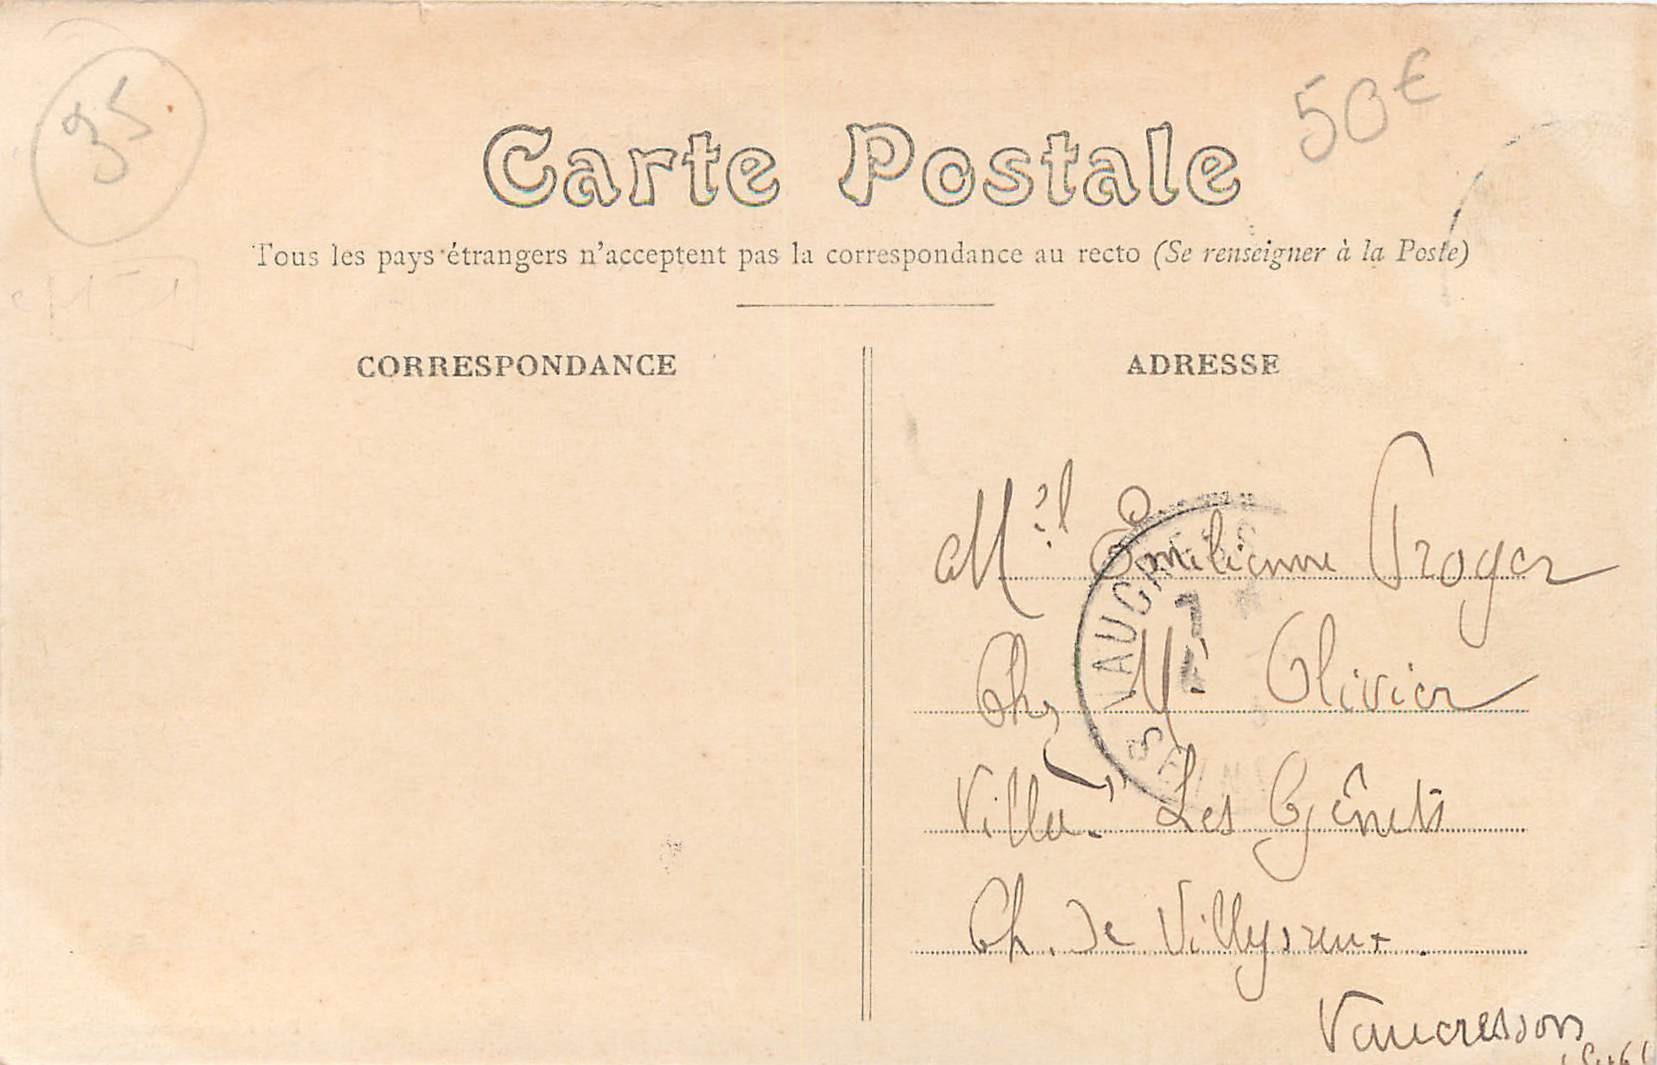 35
50€
Carte Postale
Tous les pays étrangers n'acceptent pas la correspondance au recto (Se renseigner à la Poste)
CORRESPONDANCE
ADRESSE
Mel Emilienne Proger
Chez Mr Olivier
Villa "Les Genêts
Ch. de Villysreux.
Vaucresson
VAUCRESS
SEINE